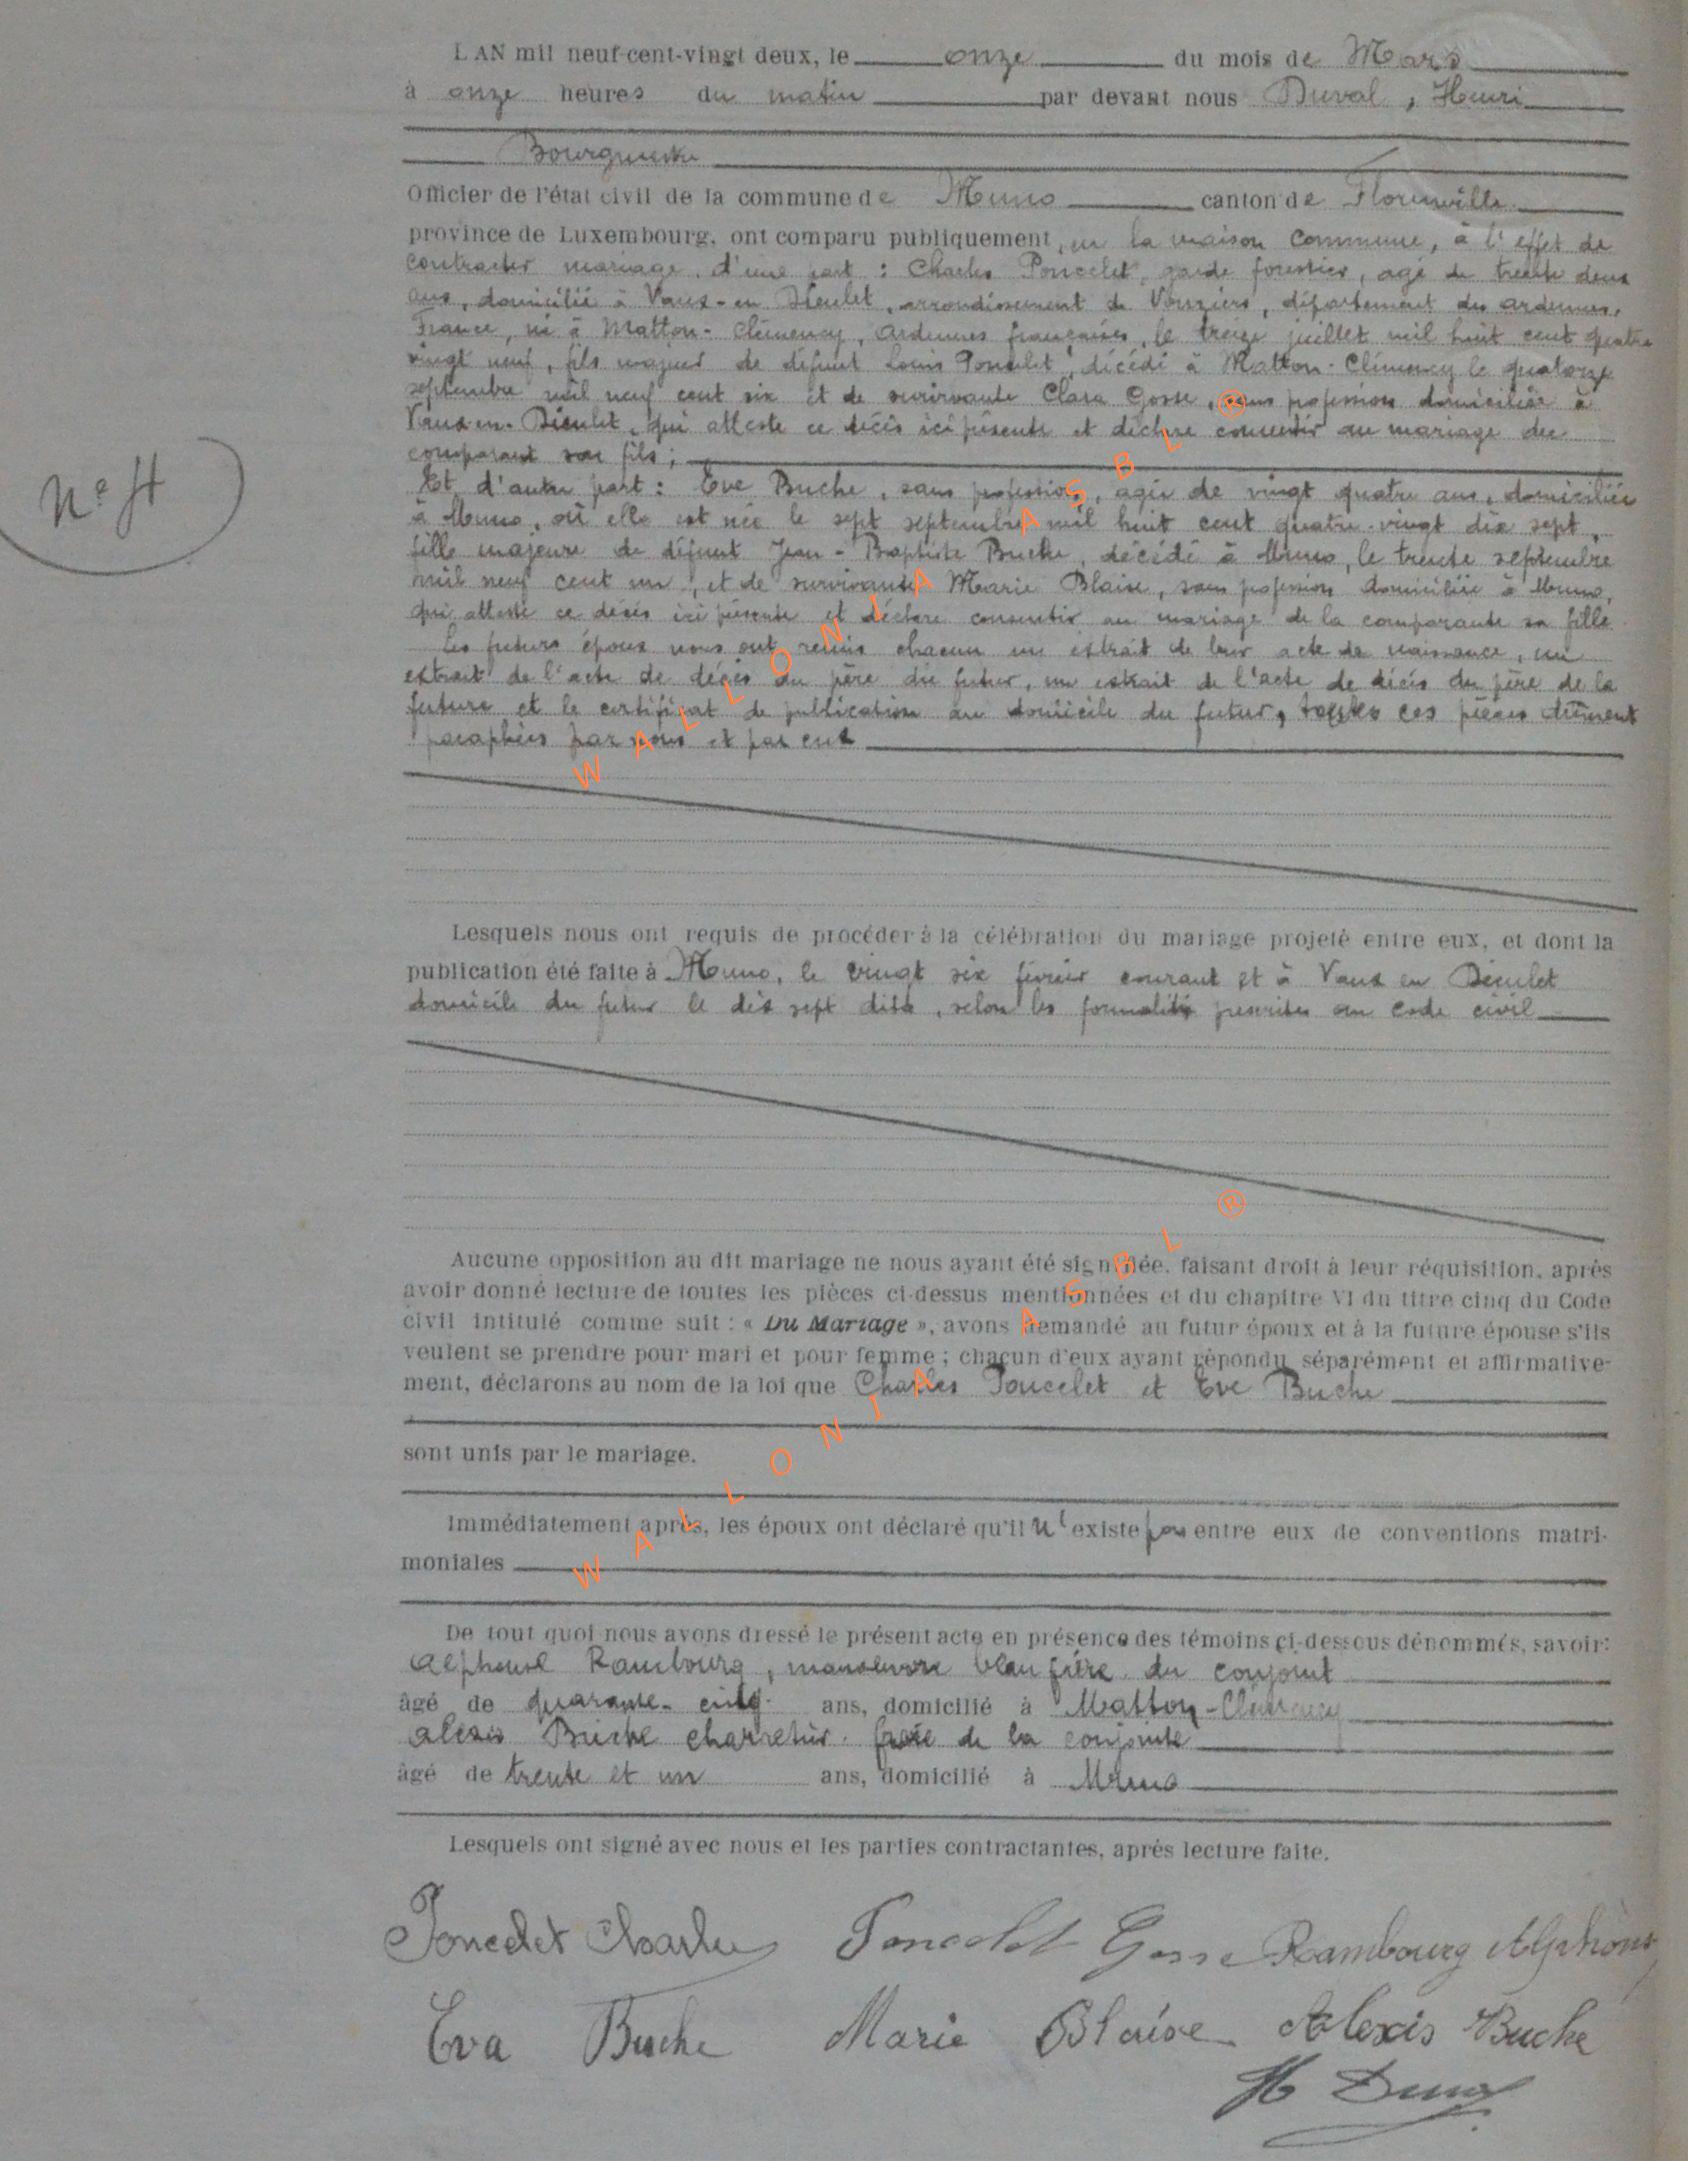 L'AN mil neuf-cent-vingt deux, le onze du mois de Mars
à onze heures du matin par devant nous Duval, Henri
Bourgmestre
Officier de l'état civil de la commune de Muno canton de Florenville
province de Luxembourg, ont comparu publiquement, en la maison commune, à l'effet de
contracter mariage, d'une part : Charles Poncelet, garde forestier, agé de trente deux
ans, domicilié à Vaux-en Dieulet, arrondissement de Vouziers, département des ardennes,
France, né à Matton-Clémency, Ardennes françaises, le treize juillet mil huit cent quatre
vingt neuf, fils majeur de défunt Louis Poncelet, décédé à Matton-Clémency le quatorze
septembre mil neuf cent six et de survivante Clara Gosse, sans profession domiciliée à
Vaux-en-Dieulet, qui atteste ce décès ici présente et déclare consentir au mariage du
comparant son fils ;
Et d'autre part : Eve Buche, sans profession, agée de vingt quatre ans, domiciliée
à Muno, où elle est née le sept septembre mil huit cent quatre-vingt dix sept,
fille majeure de défunt Jean-Baptiste Buche, décédé à Muno, le trente septembre
mil neuf cent un, et de survivante Marie Blaise, sans profession domiciliée à Muno,
qui atteste ce décès ici présente et déclare consentir au mariage de la comparante sa fille.
Les futurs époux nous ont remis chacun un extrait de leur acte de naissance, un
extrait de l'acte de décès du père du futur, un extrait de l'acte de décès du père de la
future et le certificat de publication au domicile du futur, toutes ces pièces dûment
paraphées par nous et par eux
N° 4
Lesquels nous ont requis de procéder à la célébration du mariage projeté entre eux, et dont la
publication été faite à Muno, le vingt six février courant et à Vaux en Dieulet
domicile du futur le dix sept dito, selon les formalités prescrites au code civil
Aucune opposition au dit mariage ne nous ayant été signalée, faisant droit à leur réquisition, après
avoir donné lecture de toutes les pièces ci-dessus mentionnées et du chapitre VI du titre cinq du Code
civil intitulé comme suit : « Du Mariage », avons demandé au futur époux et à la future épouse s'ils
veulent se prendre pour mari et pour femme ; chacun d'eux ayant répondu séparément et affirmative-
ment, déclarons au nom de la loi que Charles Poncelet et Eve Buche
sont unis par le mariage.
Immédiatement après, les époux ont déclaré qu'il n'existe pas entre eux de conventions matri-
moniales
De tout quoi nous avons dressé le présent acte en présence des témoins ci-dessous dénommés, savoir:
Alphonse Rambourg, manoeuvre beau frère du conjoint
âgé de quarante-cinq ans, domicilié à Matton-Clémency
Alexis Buche charretier frère de la conjointe
âgé de trente et un ans, domicilié à Muno
Lesquels ont signé avec nous et les parties contractantes, après lecture faite.
Poncelet Charles Poncelet Gosse Rambourg Alphonse
Eva Buche Marie Blaise Alexis Buche
H Duval
WALLONIA ASBL ®
WALLONIA ASBL ®